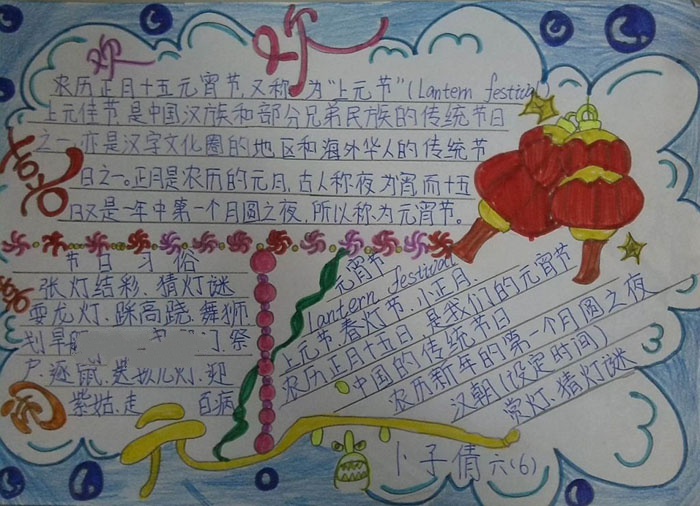 欢
农历正月十五元宵节,又称为"上元节"(Lantern festival)
上元佳节是中国汉族和部分兄弟民族的传统节日
之一,亦是汉字文化圈的地区和海外华人的传统节
日之一。正月是农历的元月,古人称夜为宵而十五
日又是一年中第一个月圆之夜,所以称为元宵节。
节日习俗
张灯结彩、猜灯谜
耍龙灯、踩高跷、舞狮
划旱 祭
户、逐鼠、 迎
紫姑、走 百病
元宵节
lantern festival
上元节、春灯节、小正月、
农历正月十五日 是我们的元宵节
中国的传统节日
农历新年的第一个月圆之夜
汉朝(设定时间)
赏灯、猜灯谜
元
卜子倩 六(6)